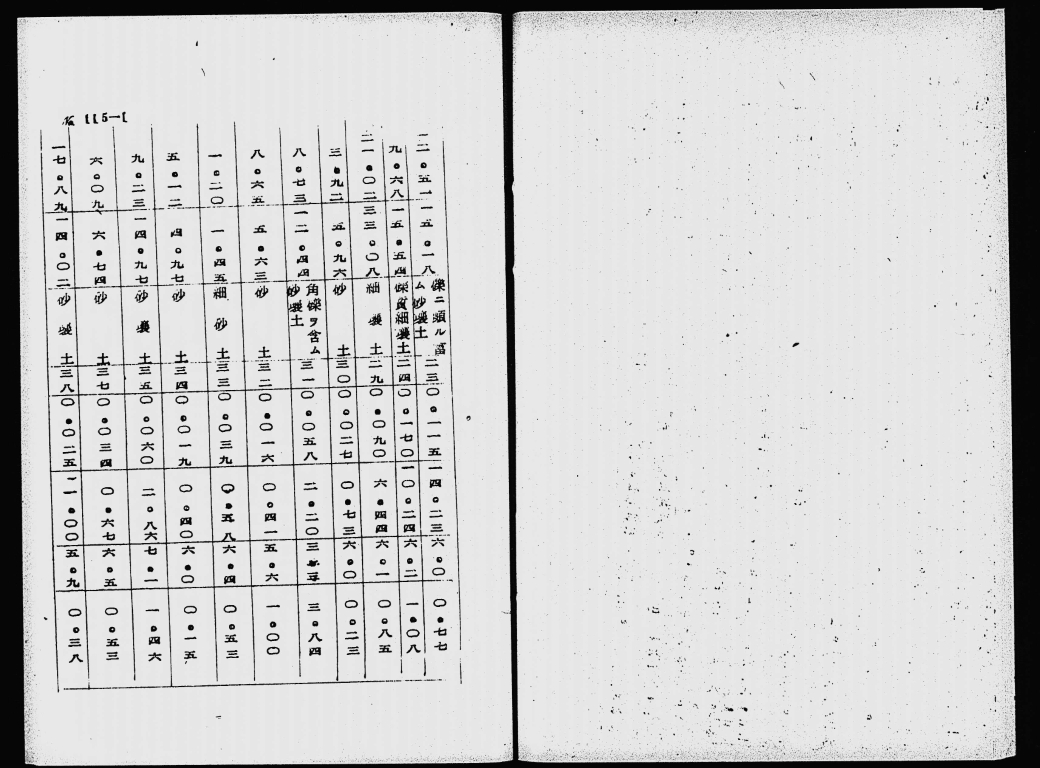 二・五一 一五・一八 礫ニ頗ル富ム砂壌土 二三 〇・一一五 一四・二三 六・〇 〇・七七
九・六八 一五・五四 礫質細壌土 二四 〇・一七〇 一〇・二四 六・二 一・〇八
二一・〇二 三三・〇八 細壌土 二九 〇・〇九〇 六・四四 六・一 〇・八五
三・九二 五・九六 砂土 三〇 〇・〇二七 〇・七三 六・〇 〇・二三
八・七三 一二・四四 角礫ヲ含ム砂壌土 三一 〇・〇五八 二・二〇 三・八四
八・六五 五・六三 砂土 三二 〇・〇一六 〇・四一 五・六 一・〇〇
一・二〇 一・四五 細砂土 三三 〇・〇三九 〇・五八 六・四 〇・五三
五・一二 四・九七 砂土 三四 〇・〇一九 〇・四〇 六・〇 〇・一五
九・二三 一四・九七 砂壌土 三五 〇・〇六〇 二・八六 七・一 一・四六
六・〇九 六・七四 砂土 三七 〇・〇三四 〇・六七 六・五 〇・五三
一七・八九 一四・〇二 砂壌土 三八 〇・〇二五 五・九 〇・三八